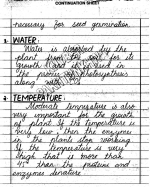 CONTINUATION SHEET
necessary for seed germination.
1. WATER:
Water is absorbed by the
plant from the soil for its
growth and it is used in
the process of photosynthesis
along with
2. TEMPERATURE:
Moderate temperature is also
very important for the growth
of plant if the temperature is
very low, then the enzymes
in the plants stop working
if the temperature is very
high that is more than
then the proteins and
enzymes denature